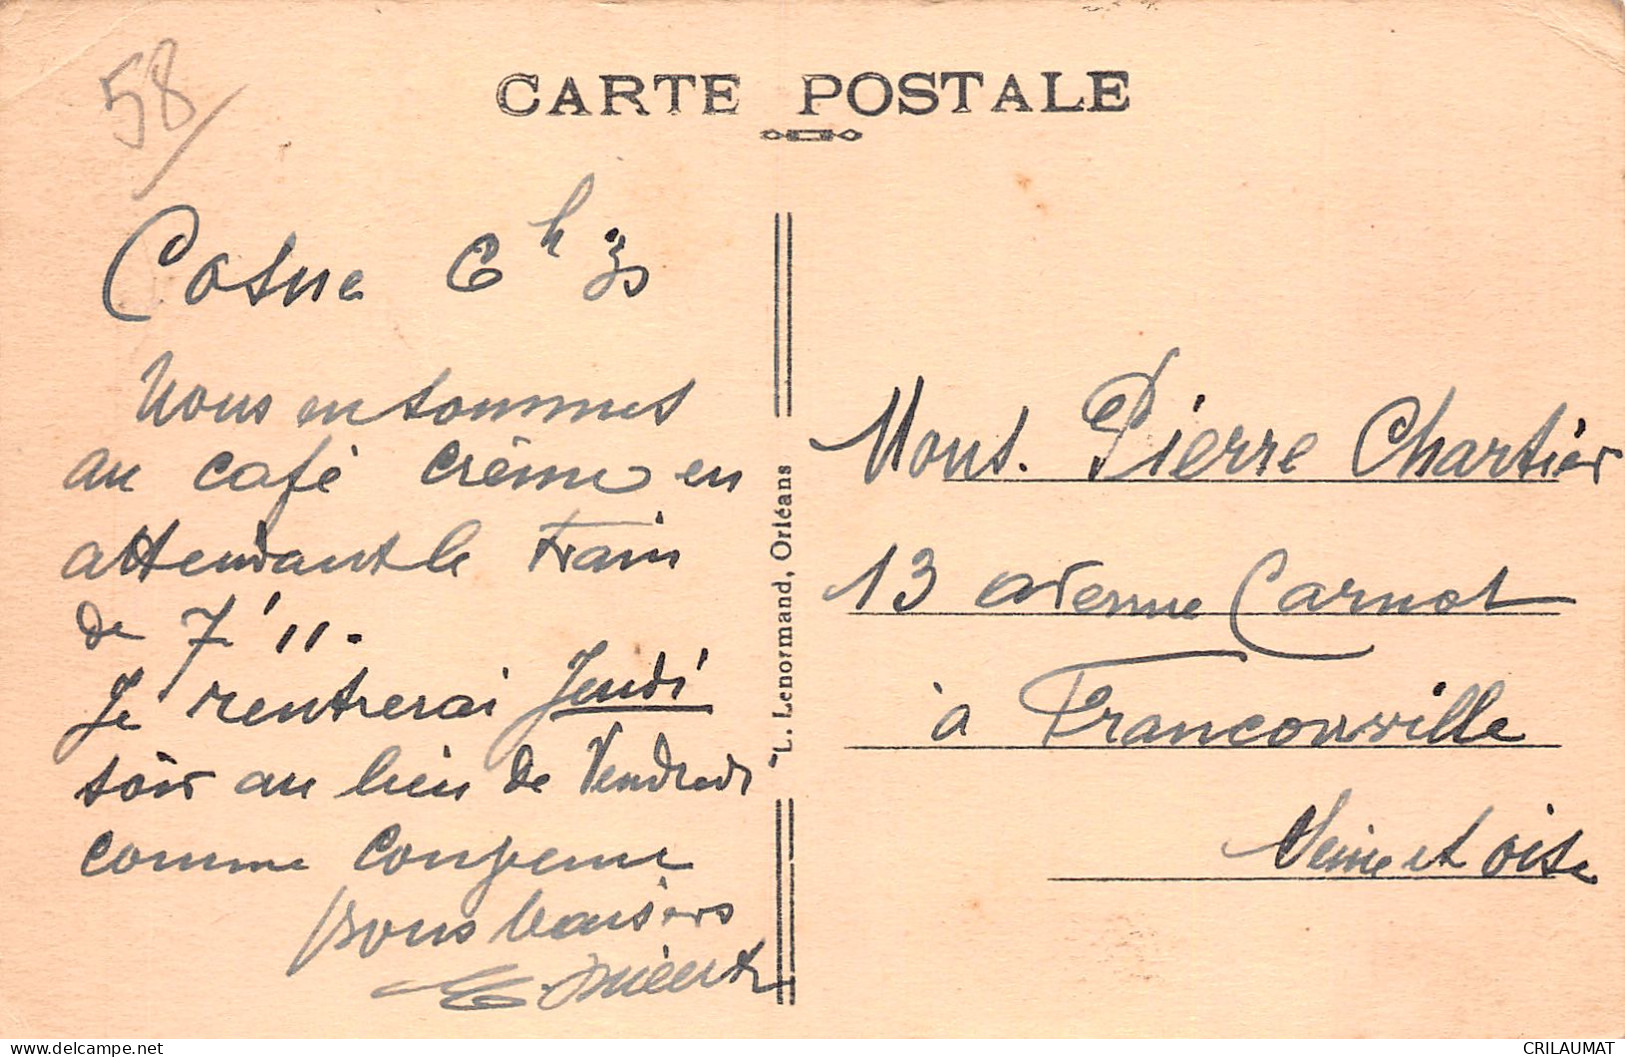 58
CARTE POSTALE
Cosne
Nous en sommes
au café crème en
attendant le train
de 7'11.
Je rentrerai Jeudi
soir au lieu de Vendredi
comme convenu
bons baisers
L. Lenormand, Orléans
Mons. Pierre Chartier
13 avenue Carnot
à Franconville
Seine et oise
CRILAUMAT